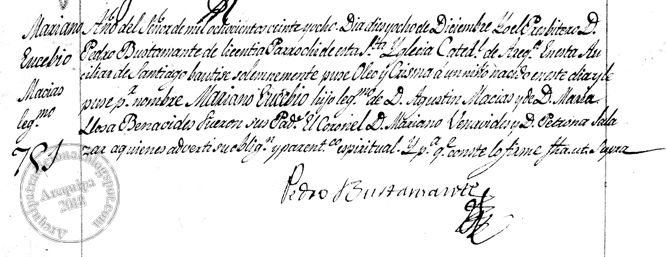 Mariano
Eucebio
Macias
leg.mo
Año del Señor de mil ochocientos veinte y ocho. Dia dies y ocho de Diciembre Yo el Presbitero D.
Pedro Bustamante de licentia Parrochi de esta Sta. Yglecia Catedl. de Areqa. En esta Au-
ciliar de Santiago bautise solemnemente puse Oleo y Crisma á un niño nacido en este dia y le
puse pr. nombre Mariano Eucebio hijo legmo. de D. Agustin Macias y de D. Maria
Llosa Benavides fueron sus Pads. El Coronel D. Mariano Venavides y D. Petrona Sala
zar aquienes adverti su oblign. y parentco. espiritual. Y pa. qe. conste lo firme fha. ut. Supra
Pedro Bustamante
Arequipa